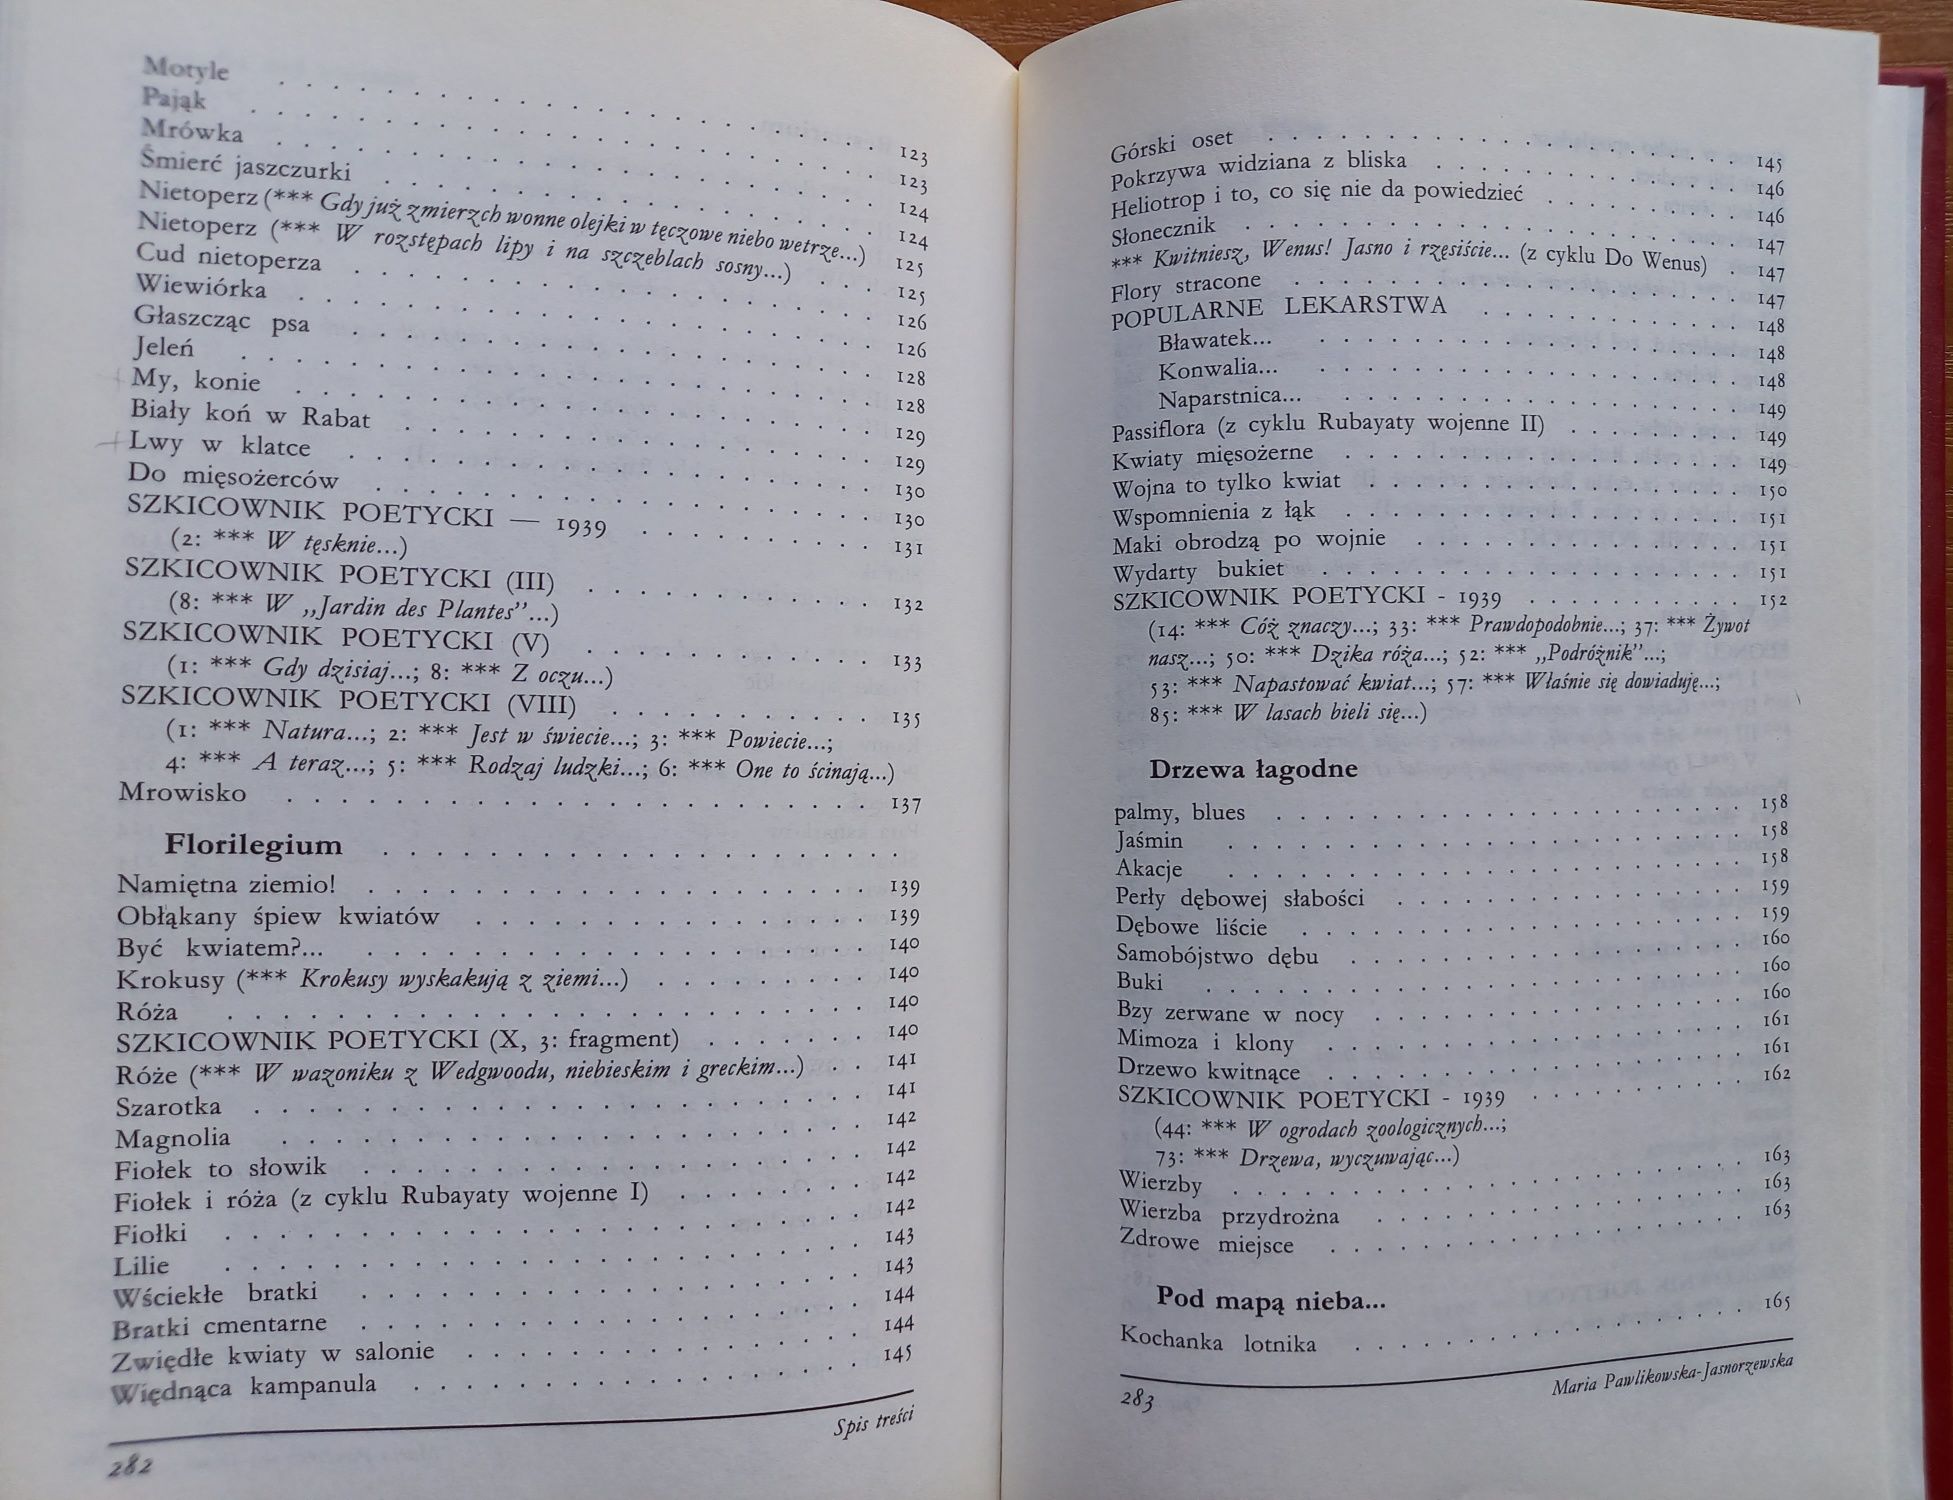 Motyle . . . . . . . . . . . . . . . . . . . . 123
Pająk . . . . . . . . . . . . . . . . . . . . 123
Mrówka . . . . . . . . . . . . . . . . . . . . 124
Śmierć jaszczurki . . . . . . . . . . . . . . . . 124
Nietoperz (*** Gdy już zmierzch wonne olejki w tęczowe niebo wetrze...) 125
Nietoperz (*** W rozstępach lipy i na szczeblach sosny...) . . . 125
Cud nietoperza . . . . . . . . . . . . . . . . . 126
Wiewiórka . . . . . . . . . . . . . . . . . . . 126
Głaszcząc psa . . . . . . . . . . . . . . . . . 128
Jeleń . . . . . . . . . . . . . . . . . . . . 128
My, konie . . . . . . . . . . . . . . . . . . . 129
Biały koń w Rabat . . . . . . . . . . . . . . . 129
Lwy w klatce . . . . . . . . . . . . . . . . . 130
Do mięsożerców . . . . . . . . . . . . . . . . 130
SZKICOWNIK POETYCKI — 1939 . . . . . . . . . 131
(2: *** W tęsknie...)
SZKICOWNIK POETYCKI (III) . . . . . . . . . . 132
(8: *** W „Jardin des Plantes”...)
SZKICOWNIK POETYCKI (V) . . . . . . . . . . 133
(1: *** Gdy dzisiaj...; 8: *** Z oczu...)
SZKICOWNIK POETYCKI (VIII) . . . . . . . . . . 135
(1: *** Natura...; 2: *** Jest w świecie...; 3: *** Powiecie...;
4: *** A teraz...; 5: *** Rodzaj ludzki...; 6: *** One to ścinają...)
Mrowisko . . . . . . . . . . . . . . . . . . . 137
Florilegium . . . . . . . . . . . . . . . . . . .
Namiętna ziemio! . . . . . . . . . . . . . . . . 139
Obłąkany śpiew kwiatów . . . . . . . . . . . . . 139
Być kwiatem?... . . . . . . . . . . . . . . . . 140
Krokusy (*** Krokusy wyskakują z ziemi...) . . . . . . . 140
Róża . . . . . . . . . . . . . . . . . . . . 140
SZKICOWNIK POETYCKI (X, 3: fragment) . . . . . . 140
Róże (*** W wazoniku z Wedgwoodu, niebieskim i greckim...) . . 141
Szarotka . . . . . . . . . . . . . . . . . . . 141
Magnolia . . . . . . . . . . . . . . . . . . . 142
Fiołek to słowik . . . . . . . . . . . . . . . . 142
Fiołek i róża (z cyklu Rubayaty wojenne I) . . . . . . . 142
Fiołki . . . . . . . . . . . . . . . . . . . . 142
Lilie . . . . . . . . . . . . . . . . . . . . 143
Wściekłe bratki . . . . . . . . . . . . . . . . 143
Bratki cmentarne . . . . . . . . . . . . . . . . 144
Zwiędłe kwiaty w salonie . . . . . . . . . . . . . 144
Więdnąca kampanula . . . . . . . . . . . . . . . 145
Spis treści
282
Górski oset . . . . . . . . . . . . . . . . . . 145
Pokrzywa widziana z bliska . . . . . . . . . . . . 146
Heliotrop i to, co się nie da powiedzieć . . . . . . . . 146
Słonecznik . . . . . . . . . . . . . . . . . . 147
*** Kwitniesz, Wenus! Jasno i rzęsiście... (z cyklu Do Wenus) . 147
Flory stracone . . . . . . . . . . . . . . . . . 147
POPULARNE LEKARSTWA . . . . . . . . . . . 148
Bławatek... . . . . . . . . . . . . . . . . . 148
Konwalia... . . . . . . . . . . . . . . . . . 148
Naparstnica... . . . . . . . . . . . . . . . . 149
Passiflora (z cyklu Rubayaty wojenne II) . . . . . . . 149
Kwiaty mięsożerne . . . . . . . . . . . . . . . 149
Wojna to tylko kwiat . . . . . . . . . . . . . . 150
Wspomnienia z łąk . . . . . . . . . . . . . . . 151
Maki obrodzą po wojnie . . . . . . . . . . . . . 151
Wydarty bukiet . . . . . . . . . . . . . . . . 151
SZKICOWNIK POETYCKI - 1939 . . . . . . . . . 152
(14: *** Cóż znaczy...; 33: *** Prawdopodobnie...; 37: *** Żywot
nasz...; 50: *** Dzika róża...; 52: *** „Podróżnik”...;
53: *** Napastować kwiat...; 57: *** Właśnie się dowiaduję...;
85: *** W lasach bieli się...)
Drzewa łagodne
palmy, blues . . . . . . . . . . . . . . . . . 158
Jaśmin . . . . . . . . . . . . . . . . . . . 158
Akacje . . . . . . . . . . . . . . . . . . . 158
Perły dębowej słabości . . . . . . . . . . . . . 159
Dębowe liście . . . . . . . . . . . . . . . . . 159
Samobójstwo dębu . . . . . . . . . . . . . . . 160
Buki . . . . . . . . . . . . . . . . . . . . 160
Bzy zerwane w nocy . . . . . . . . . . . . . . 160
Mimoza i klony . . . . . . . . . . . . . . . . 161
Drzewo kwitnące . . . . . . . . . . . . . . . . 161
SZKICOWNIK POETYCKI - 1939 . . . . . . . . . 162
(44: *** W ogrodach zoologicznych...;
73: *** Drzewa, wyczuwając...)
Wierzby . . . . . . . . . . . . . . . . . . . 163
Wierzba przydrożna . . . . . . . . . . . . . . 163
Zdrowe miejsce . . . . . . . . . . . . . . . . 163
Pod mapą nieba...
Kochanka lotnika . . . . . . . . . . . . . . . 165
Maria Pawlikowska-Jasnorzewska
283